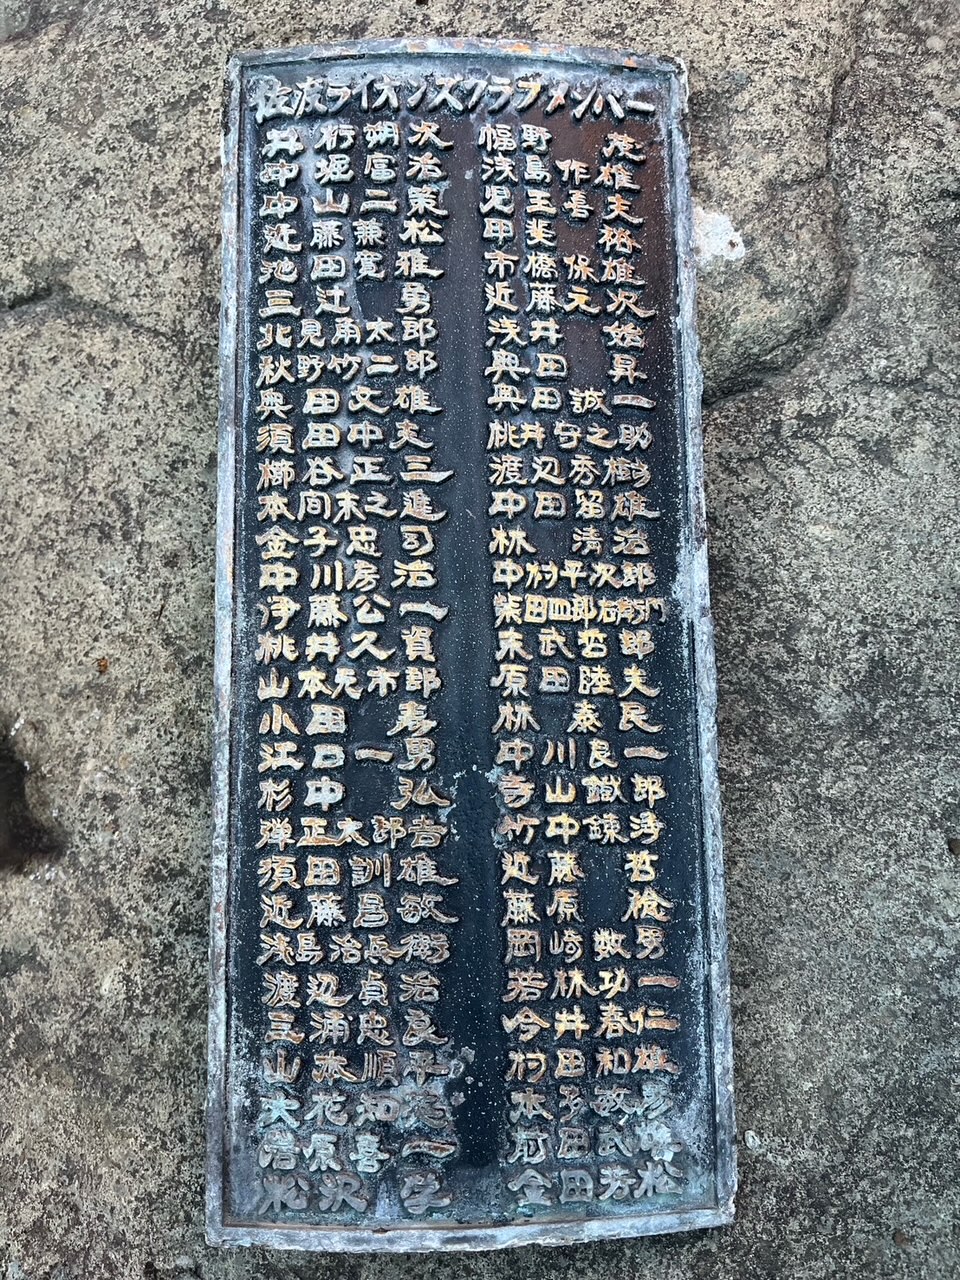 佐渡ライオンズクラブメンバー
井行朔次
中堀富治
中山二策
近藤兼松
池田寛雅
三辻勇
北見角太郎
秋野竹二郎
奥田文雄
須田中夫
櫛谷正三
本間末之進
金子忠司
中川房治
浄藤公一
桃井久資
山本元市郎
小田嘉
江口一男
杉中弘
弾正太郎吉
須田訓雄
近藤昌敏
浅島治兵衛
渡辺貞治
三浦忠良
山本順平
大花知
原喜一
松沢学
幅野茂
浅島作雄
児玉喜夫
甲斐裕
市橋保雄
近藤元次
浅井始
奥田昇
奥田誠一
桃井守之助
渡辺秀樹
中田留雄
林清治
中村平次郎
柴田四郎右衛門
末武哲郎
原田陸夫
林泰民
中川良一
寺山鐵郎
竹中錬淳
近藤哲
藤原稔
岡崎数男
若林功一
今井春仁
村田和雄
本多敏彦
前田武
金田芳松